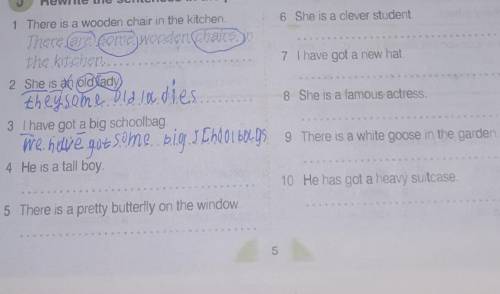 1 There is a wooden chair in the kitchen.
There are some wooden chairs in
the kitchen.
2 She is an old lady.
they some old ladies
3 I have got a big schoolbag.
We have got some big schoolbags
4 He is a tall boy.
5 There is a pretty butterfly on the window.
6 She is a clever student.
7 I have got a new hat.
8 She is a famous actress.
9 There is a white goose in the garden.
10 He has got a heavy suitcase.
5